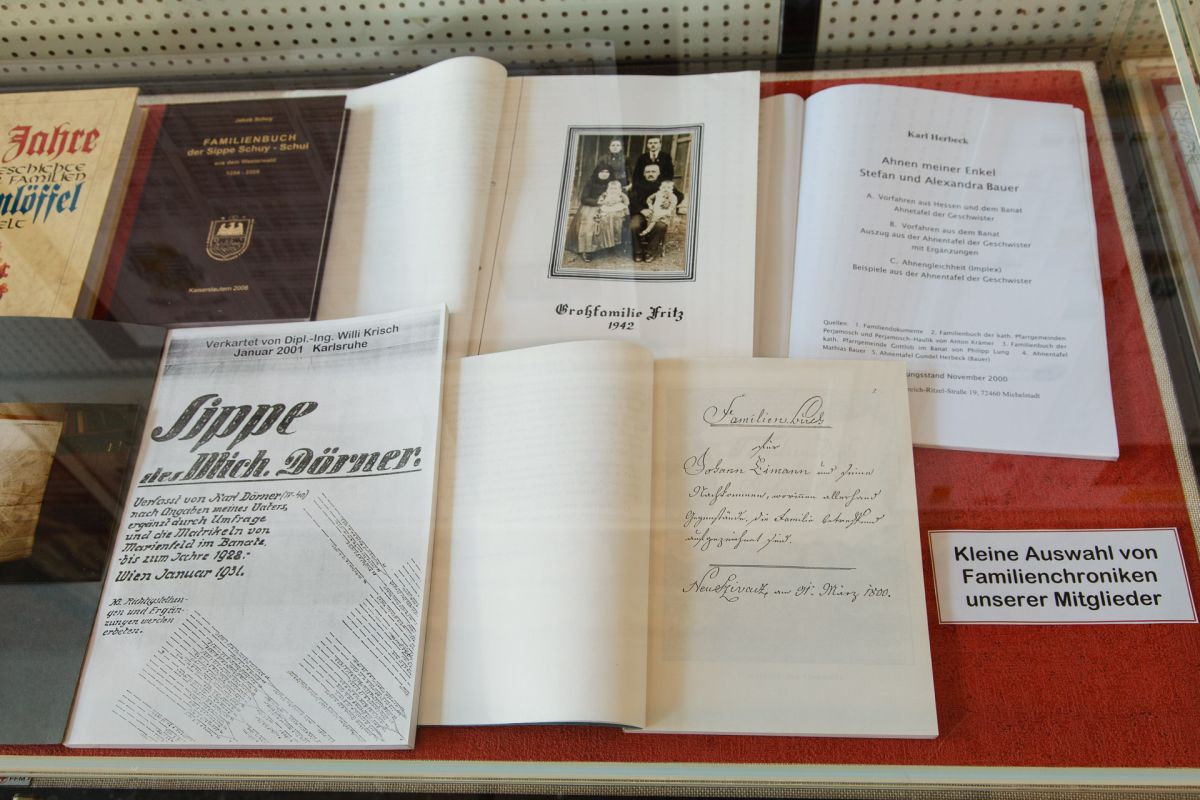 Jahre
löffel
Jakob Schuy
FAMILIENBUCH
der Sippe Schuy - Schui
aus dem Westerwald
1294 - 2008
Kaiserslautern 2008
Großfamilie Fritz
1942
Karl Herbeck
Ahnen meiner Enkel
Stefan und Alexandra Bauer
A. Vorfahren aus Hessen und dem Banat
Ahnetafel der Geschwister
B. Vorfahren aus dem Banat
Auszug aus der Ahnentafel der Geschwister
mit Ergänzungen
C. Ahnengleichheit (Implex)
Beispiele aus der Ahnentafel der Geschwister
Quellen: 1. Familiendokumente 2. Familienbuch der kath. Pfarrgemeinden
Perjamosch und Perjamosch-Haulik von Anton Krämer 3. Familienbuch der
kath. Pfarrgemeinde Gottlob im Banat von Philipp Lung 4. Ahnentafel
Mathias Bauer 5. Ahnentafel Gundel Herbeck (Bauer)
ungsstand November 2000
reich-Ritzel-Straße 19, 72460 Michelstadt
Verkartet von Dipl.-Ing. Willi Krisch
Januar 2001 Karlsruhe
Sippe
des Mich. Dörner.
Verfasst von Karl Dörner
nach Angaben meines Vaters,
ergänzt durch Umfrage
und die Matrikeln von
Marienfeld im Banate,
-bis zum Jahre 1928.-
Wien Januar 1931.
NB. Richtigstellun-
gen und Ergän-
zungen werden
erbeten.
Familien Buch
für
Johann Eimann und seine
Nachkommen, worinnen allerhand
Gegenstände, die Familie betreffend
aufgezeichnet sind.
März 1800.
Kleine Auswahl von
Familienchroniken
unserer Mitglieder